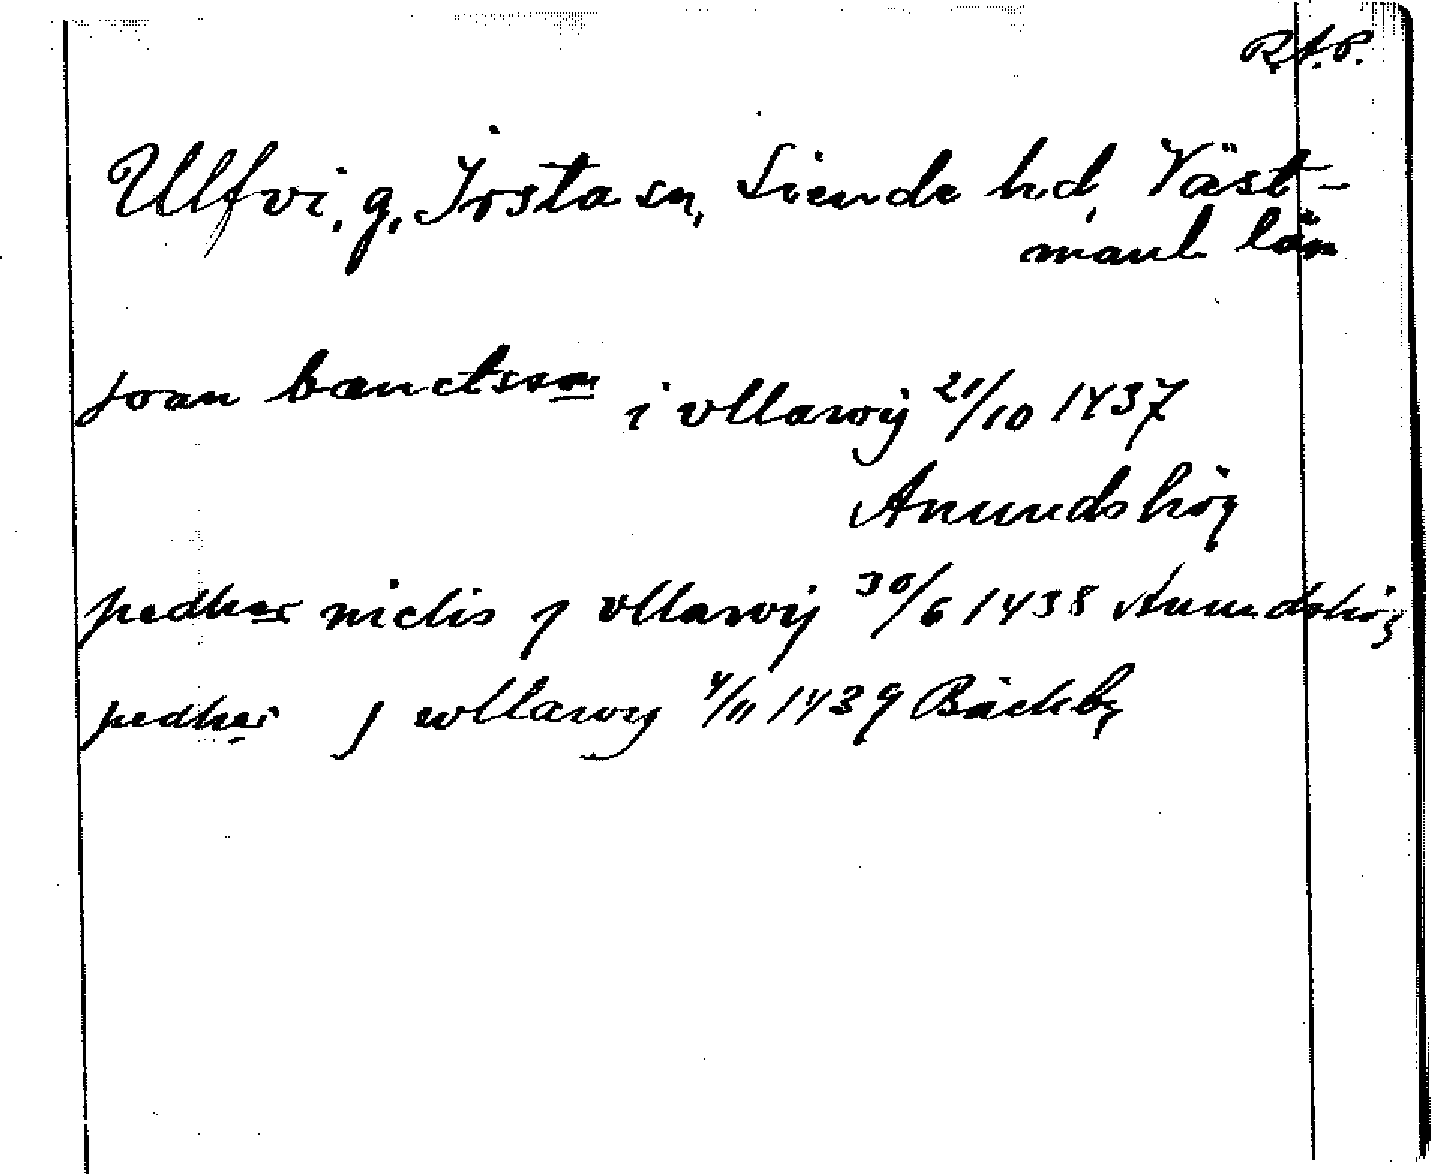 R.A.P.
Ulfvi, g, Irsta sn, Siende hd, Väst-
manl. län
joan bænctsson i vllawÿ 21/10 1437
Anundshög
pedher niclis j vllawij 30/6 1438 Anundshög
pedher j wllawy 4/11 1439 Bäckby